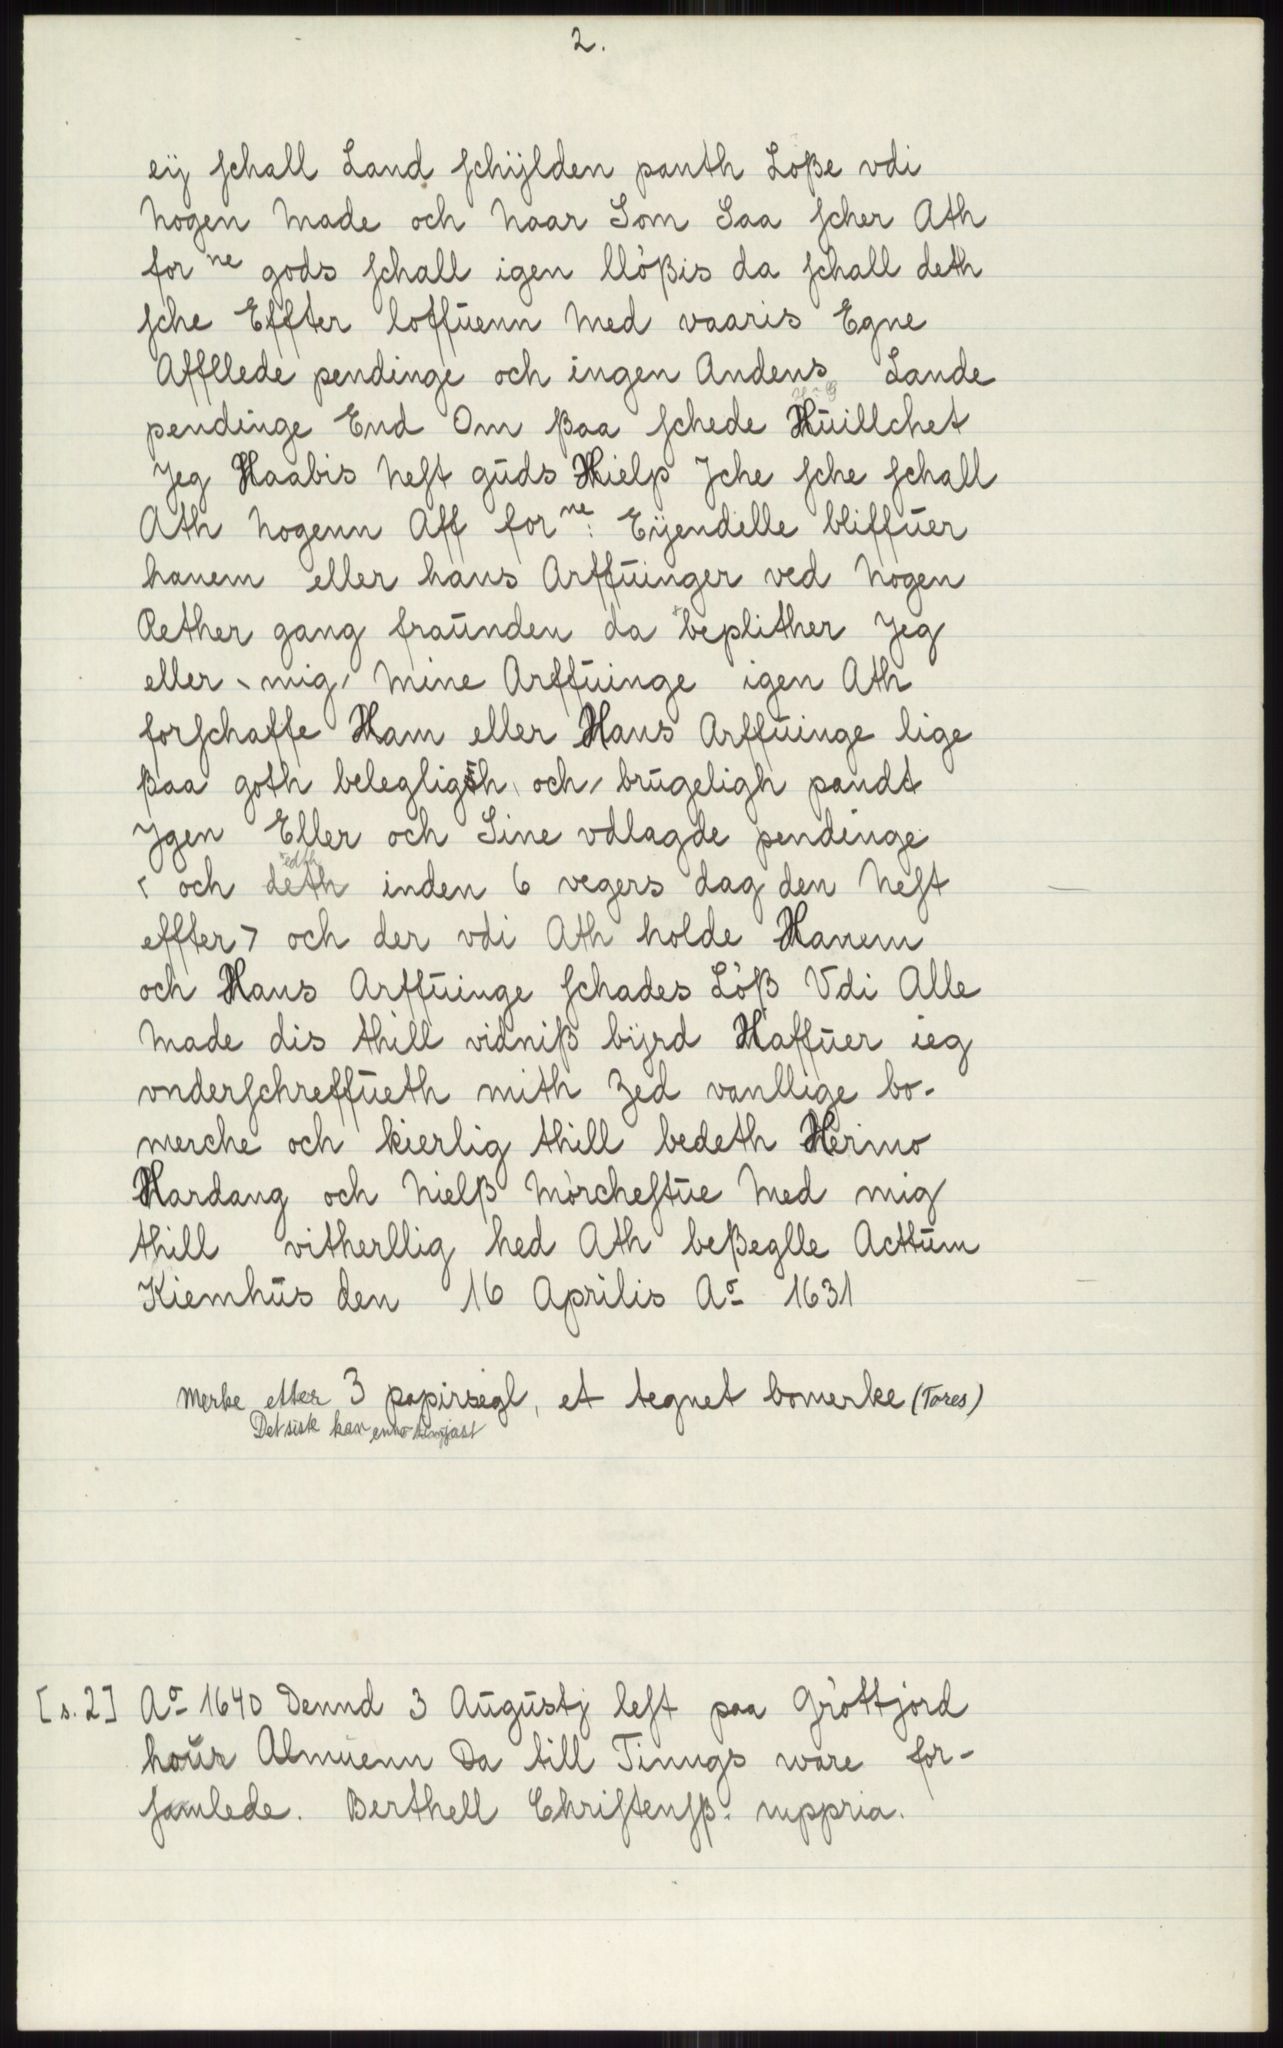 2.
eÿ schall Land schÿlden panth Loße vdi
Nogen Made och Naar Som Saa scher Ath
for ne gods schall igen llößis da schall deth
sche Effter loffuenn Med vaaris Egne
Affllede pendinge och ingen Andens Lande
pendinge End Om ßaa schede Huillchet
Jeg Haabis Nest guds Hielp Jche sche schall
Ath Nogenn Aff for ne: Eÿendelle bliffuer
hanem eller hans Arffuinger ved Nogen
Rether gang fraunden da beplither Jeg
eller mig, Mine Arffuinge igen Ath
forschaffe Ham eller Hans Arffuinge lige
ßaa goth belegligth och, brugeligh pandt
Jgen Eller och Sine vdlagde pendinge
< och deth inden 6 vegers dag den Nest
effter > och der vdi Ath holde Hanem
och Hans Arffuinge schades Löß Vdi Alle
Made dis thill vidniß bÿrd Haffuer ieg
vnderschreffueth mith Zed vanllige bo-
merche och kierlig thill bedeth Herino
Hardang och Nielß Mörchestue Med mig
thill vitherllig hed Ath beßeglle Acttum
Kiemhus den 16 Aprilis Ao 1631
Merke etter 3 papirsegl, et tegnet bomerke (Tores)
Det sisk kan enno
[s. 2] Ao 1640 Dennd 3 Augustj lest paa Gröttjord
hour Almuenn Da till Tinngs ware for-
samlede. Berthell Christensß: mppria.